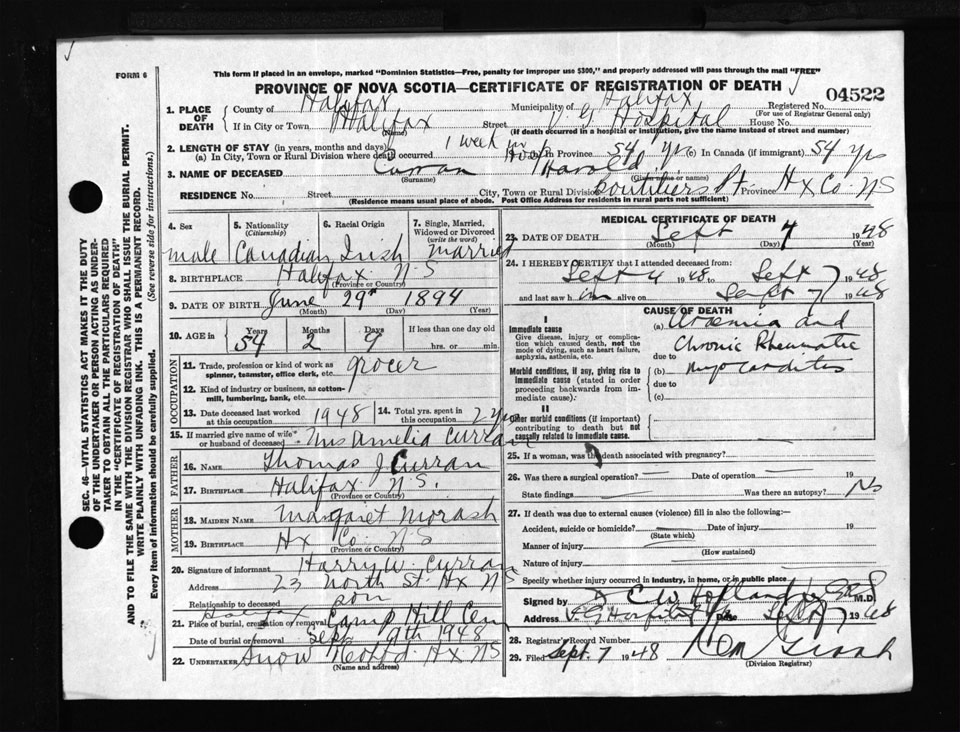 FORM 6
This form if placed in an envelope, marked "Dominion Statistics—Free, penalty for improper use $300," and properly addressed will pass through the mail "FREE"
PROVINCE OF NOVA SCOTIA—CERTIFICATE OF REGISTRATION OF DEATH
04522
1. PLACE OF DEATH
County of Halifax Municipality of Halifax Registered No.
(For use of Registrar General only)
If in City or Town Halifax Street V. G Hospital House No.
(Name) (If death occurred in a hospital or institution, give the name instead of street and number)
2. LENGTH OF STAY (in years, months and days)
(a) In City, Town or Rural Division where death occurred 1 week in Hosp In Province 54 yrs (c) In Canada (if immigrant) 54 yrs
3. NAME OF DECEASED Curran Harold
(Surname) (Given name or names)
RESIDENCE No. Street City, Town or Rural Division Province Hx Co. NS
(Residence means usual place of abode. Post Office Address for residents in rural parts not sufficient)
SEC. 46—VITAL STATISTICS ACT MAKES IT THE DUTY
OF THE UNDERTAKER OR PERSON ACTING AS UNDER-
TAKER TO OBTAIN ALL THE PARTICULARS REQUIRED
IN THE "CERTIFICATE OF REGISTRATION OF DEATH"
AND TO FILE THE SAME WITH THE DIVISION REGISTRAR WHO SHALL ISSUE THE BURIAL PERMIT.
WRITE PLAINLY WITH UNFADING INK. THIS IS A PERMANENT RECORD.
Every item of information should be carefully supplied. (See reverse side for instructions.)
4. Sex
male
5. Nationality
(Citizenship)
Canadian
6. Racial Origin
Irish
7. Single, Married, Widowed or Divorced
(write the word)
Married
8. BIRTHPLACE Halifax N S
(Province or Country)
9. DATE OF BIRTH June 29 1894
(Month) (Day) (Year)
10. AGE in
Years Months Days If less than one day old
54 2 9 hrs. or min.
OCCUPATION
11. Trade, profession or kind of work as
spinner, teamster, office clerk, etc. grocer
12. Kind of industry or business, as cotton-
mill, lumbering, bank, etc.
13. Date deceased last worked
at this occupation 1948
14. Total yrs. spent in
this occupation 2 yrs
15. If married give name of wife
or husband of deceased Mrs Amelia Curran
FATHER
16. NAME Thomas J. Curran
17. BIRTHPLACE Halifax N.S.
(Province or Country)
MOTHER
18. MAIDEN NAME Margaret Morash
19. BIRTHPLACE Hx Co. N S
(Province or Country)
20. Signature of informant Harry W. Curran
Address 23 North St. Hx NS
Relationship to deceased son
21. Place of burial, cremation or removal Halifax Camp Hill Cem
Date of burial or removal Sept 9th 1948
22. UNDERTAKER Snow & Co Ltd. Hx NS
(Name and address)
MEDICAL CERTIFICATE OF DEATH
23. DATE OF DEATH Sept 7 1948
(Month) (Day) (Year)
24. I HEREBY CERTIFY that I attended deceased from:
Sept 4 1948 to Sept 7 1948
and last saw him alive on Sept 7 1948
CAUSE OF DEATH
I
Immediate cause
Give disease, injury or complica-
tion which caused death, not the
mode of dying, such as heart failure,
asphyxia, asthenia, etc.
(a) Uraemia and
Chronic Rheumatic
due to
Morbid conditions, if any, giving rise to
immediate cause (stated in order
proceeding backwards from im-
mediate cause):
(b) myocarditis
due to
(c)
II
Other morbid conditions (if important)
contributing to death but not
causally related to immediate cause.
25. If a woman, was the death associated with pregnancy?
26. Was there a surgical operation? Date of operation 19
State findings Was there an autopsy? No
27. If death was due to external causes (violence) fill in also the following:
Accident, suicide or homicide? Date of injury 19
(State which)
Manner of injury
(How sustained)
Nature of injury
Specify whether injury occurred in industry, in home, or in public place
Signed by M.D.
Address V. G Hospital Date Sept 7 1948
28. Registrar's Record Number
29. Filed Sept. 7 1948
(Division Registrar)